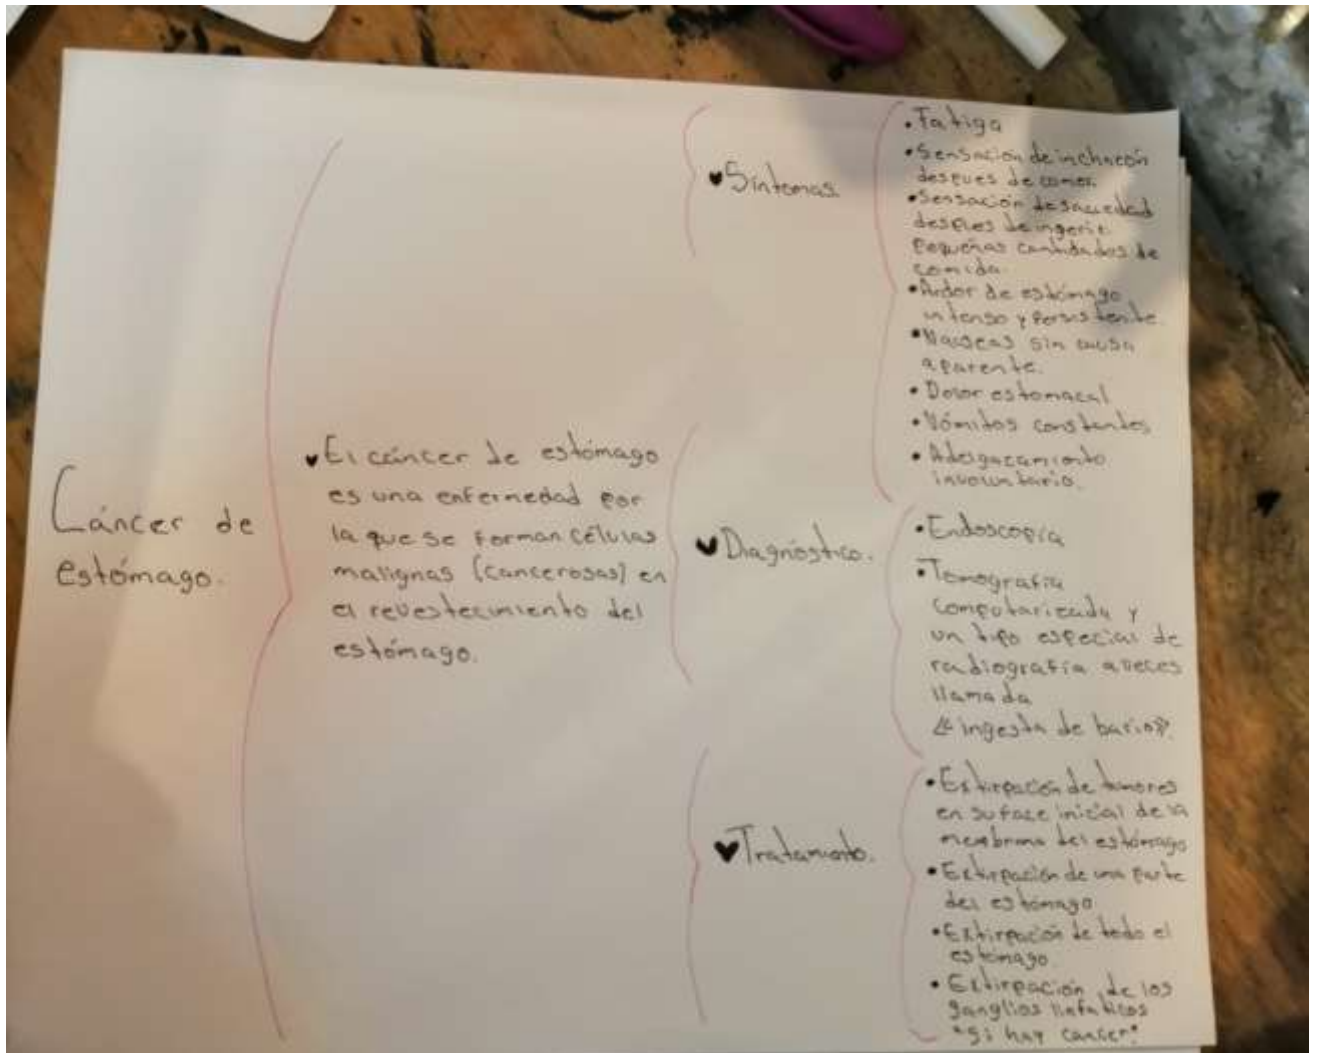 Cáncer de
estómago.
El cáncer de estómago
es una enfermedad por
la que se forman células
malignas (cancerosas) en
el revestecimiento del
estómago.
Síntomas.
• Fatiga
• Sensación de inchacón
despues de comer.
• Sensación de saciedad
despues de ingerir
pequeñas cantidades de
comida.
• Ardor de estómago
intenso y persistente.
• Nauseas sin causa
aparente.
• Dolor estomacal
• Vómitos constantes
• Adelgazamiento
involuntario.
Diagnóstico.
• Endoscopía
• Tomografía
computarizada y
un tipo especial de
radiografía a veces
llamada
«ingesta de bario».
Tratamiento.
• Extirpación de tumores
en su fase inicial de la
membrana del estómago
• Extirpación de una parte
del estómago
• Extirpación de todo el
estómago
• Extirpación de los
ganglios linfáticos
"Si hay cancer"